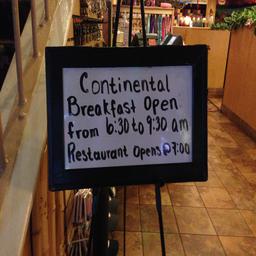 Continental
Breakfast Open
from 6:30 to 9:30 am
Restaurant Opens @ 7:00